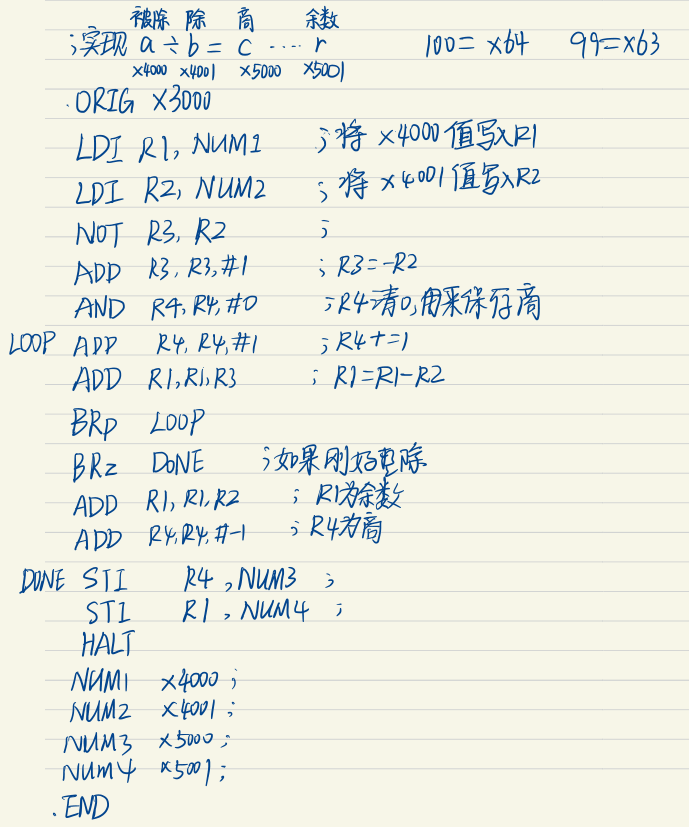 被除 除 商 余数
;实现 a ÷ b = c ···· r 100 = x64 99 = x63
x4000 x4001 x5000 x5001
.ORIG x3000
LDI R1, NUM1 ;将 x4000 值写入R1
LDI R2, NUM2 ;将 x4001 值写入R2
NOT R3, R2 ;
ADD R3, R3, #1 ; R3=-R2
AND R4, R4, #0 ;R4清0,用来保存商
LOOP ADD R4, R4, #1 ; R4+=1
ADD R1, R1, R3 ; R1=R1-R2
BRp LOOP
BRz DONE ;如果刚好整除
ADD R1, R1, R2 ; R1为余数
ADD R4, R4, #-1 ; R4为商
DONE STI R4, NUM3 ;
STI R1, NUM4 ;
HALT
NUM1 x4000 ;
NUM2 x4001 ;
NUM3 x5000 ;
NUM4 x5001 ;
.END